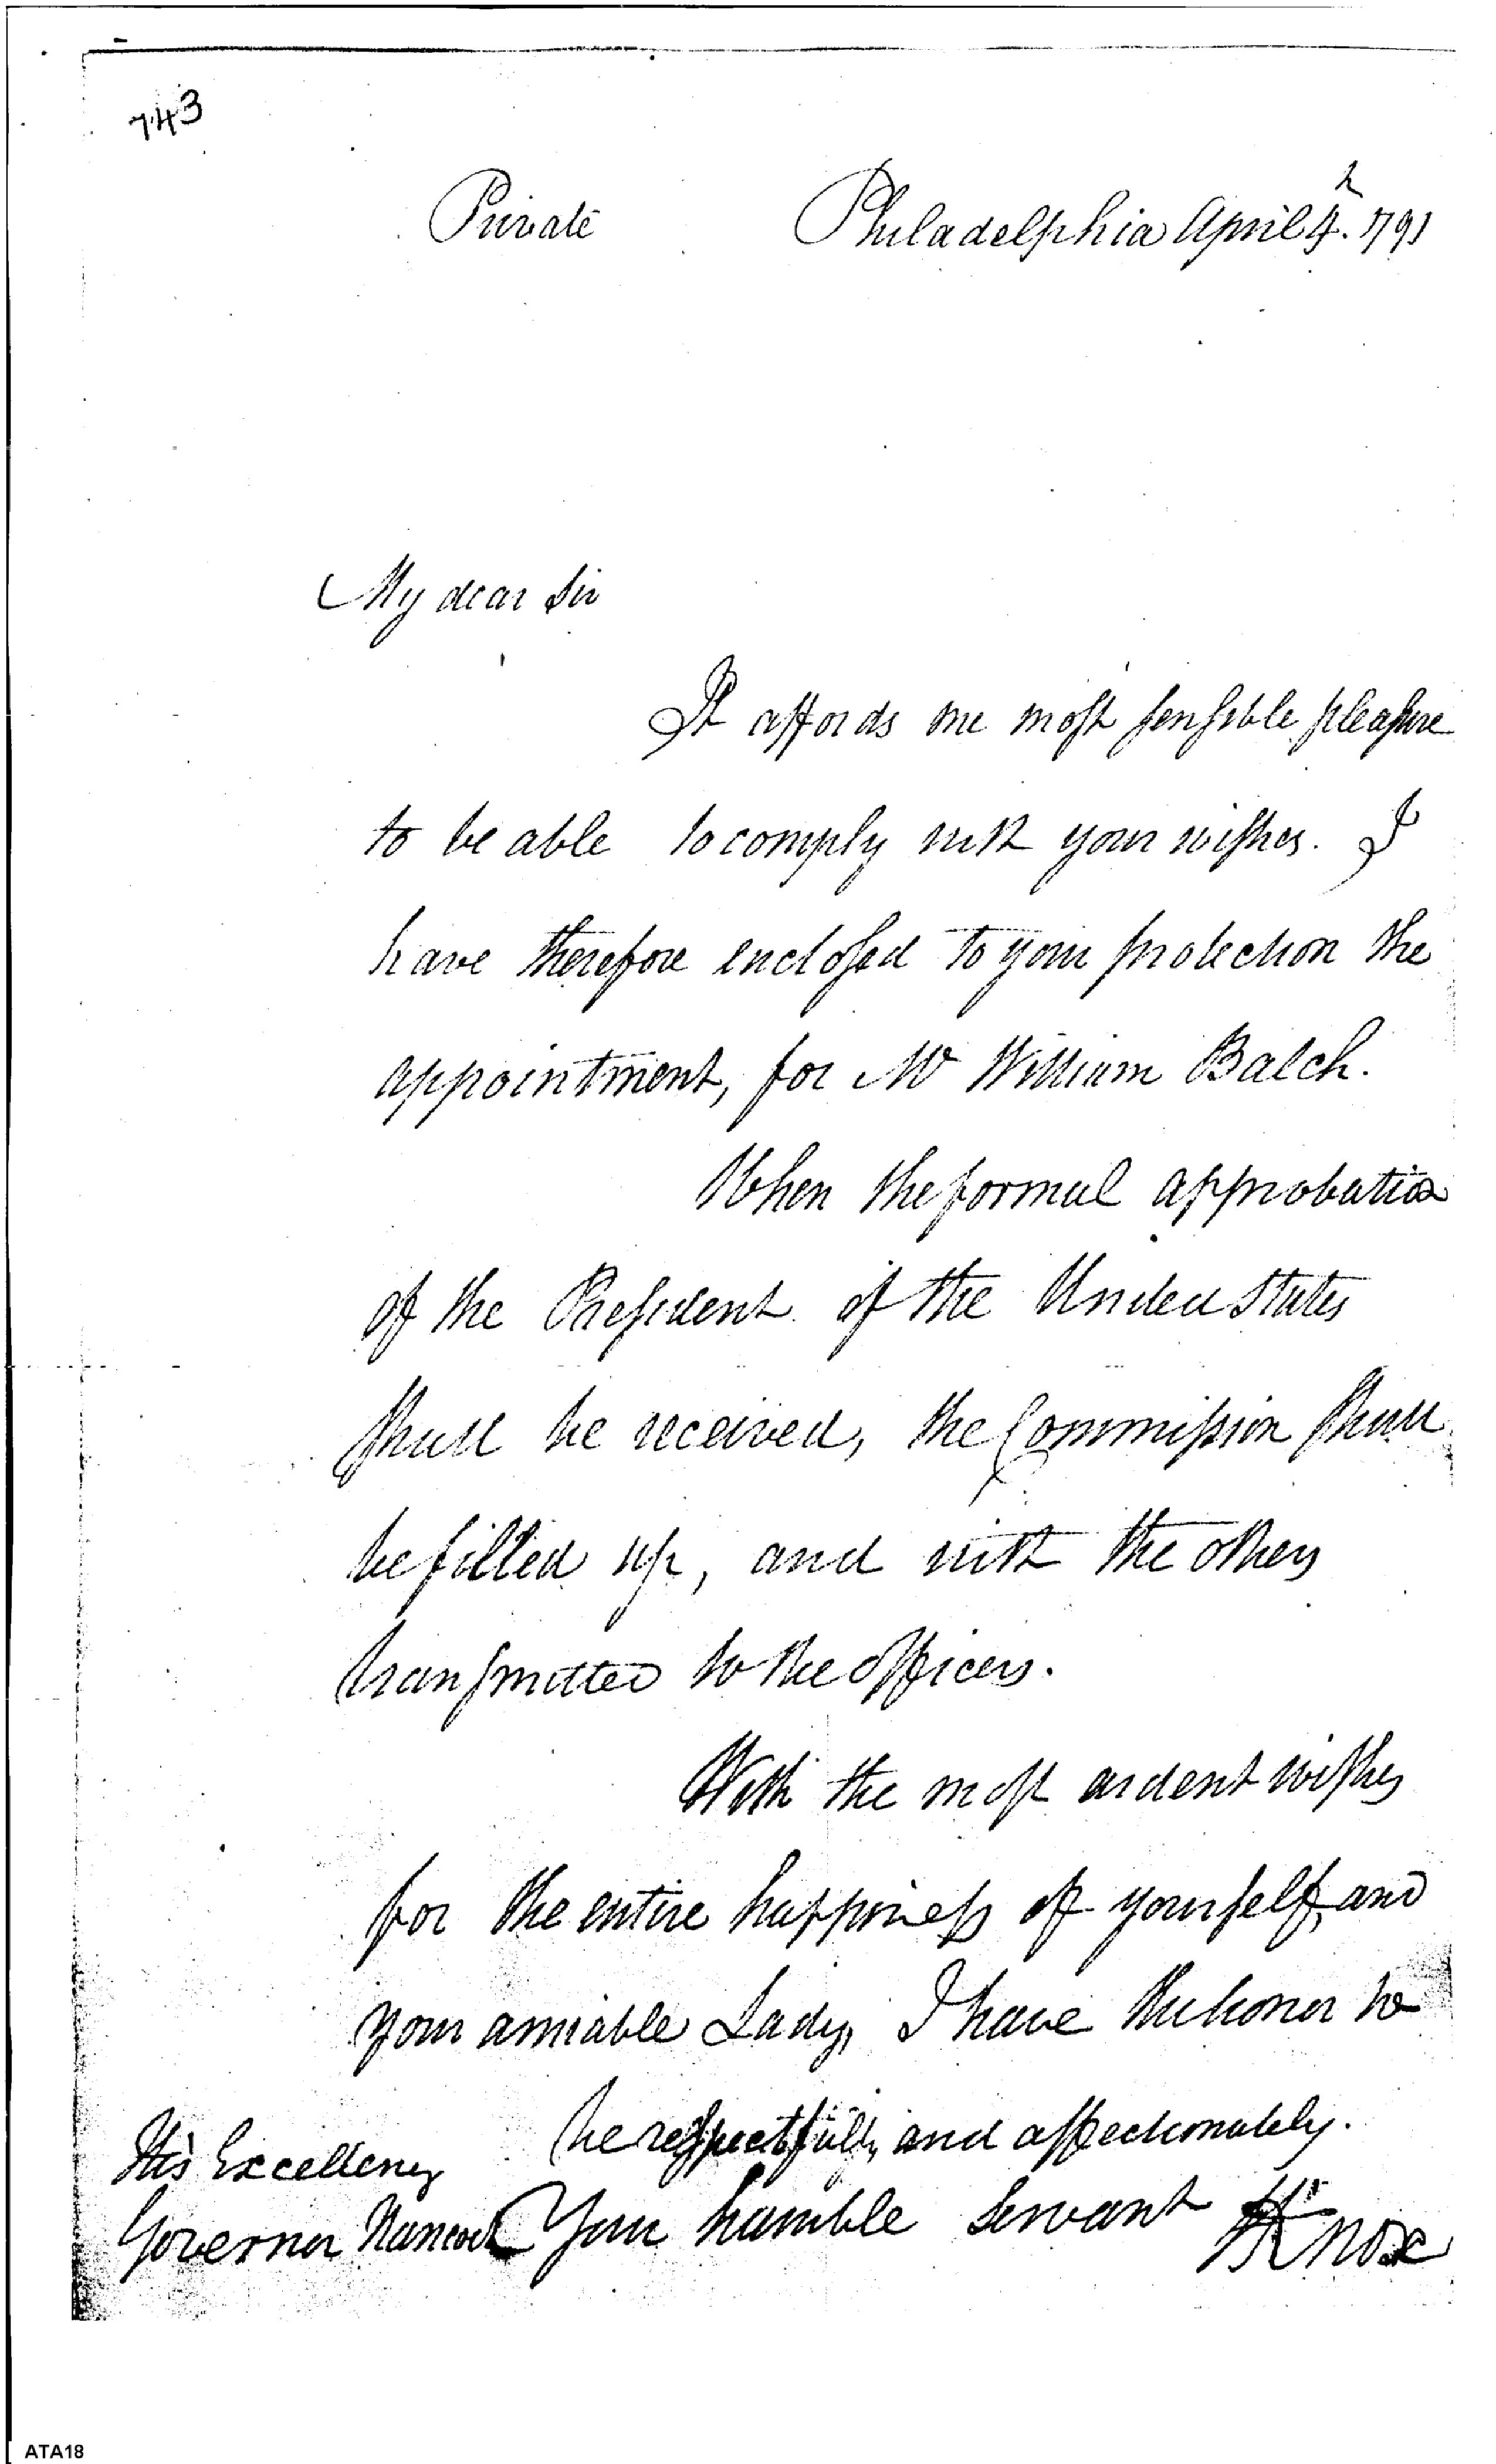 743
Private Philadelphia April 4h. 1791
My dear Sir
It affords me most sensible pleasure
to be able to comply with your wishes. I
have therefore enclosed to your protection the
appointment, for Mr William Balch.
When the formal approbation
of the President of the United States
shall be received, the Commission shall
be filled up, and with the others
transmitted to the officers.
With the most ardent wishes
for the entire happiness of yourself, and
your amiable Lady, I have the honor to
be respectfully and affectionately.
Your humble servant HKnox
His Excellency
Governor Hancock
ATA18